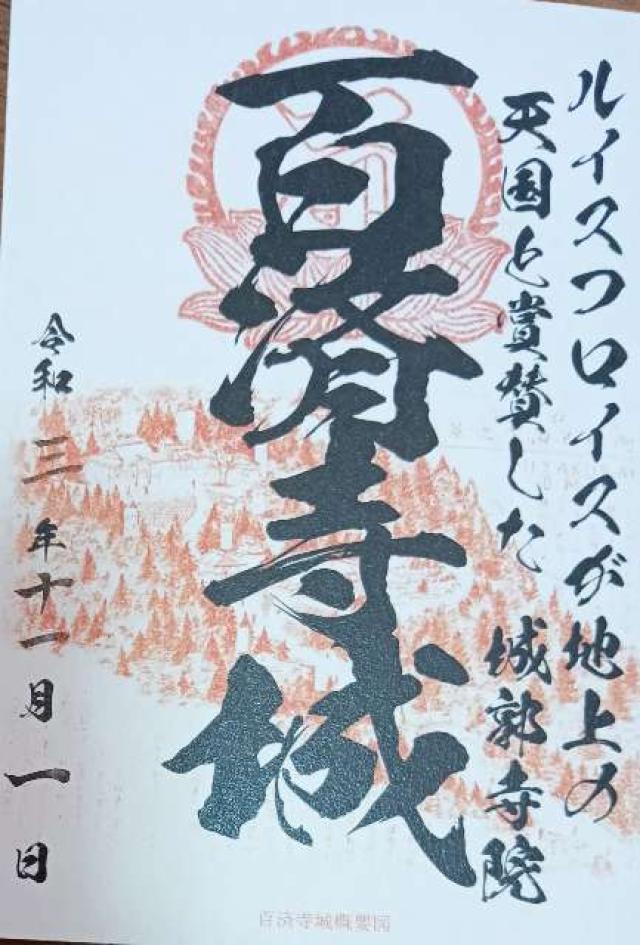 ルイスフロイスが地上の
天国と賞賛した 城郭寺院
百済寺城
令和三年十一月一日
百済寺城概要図